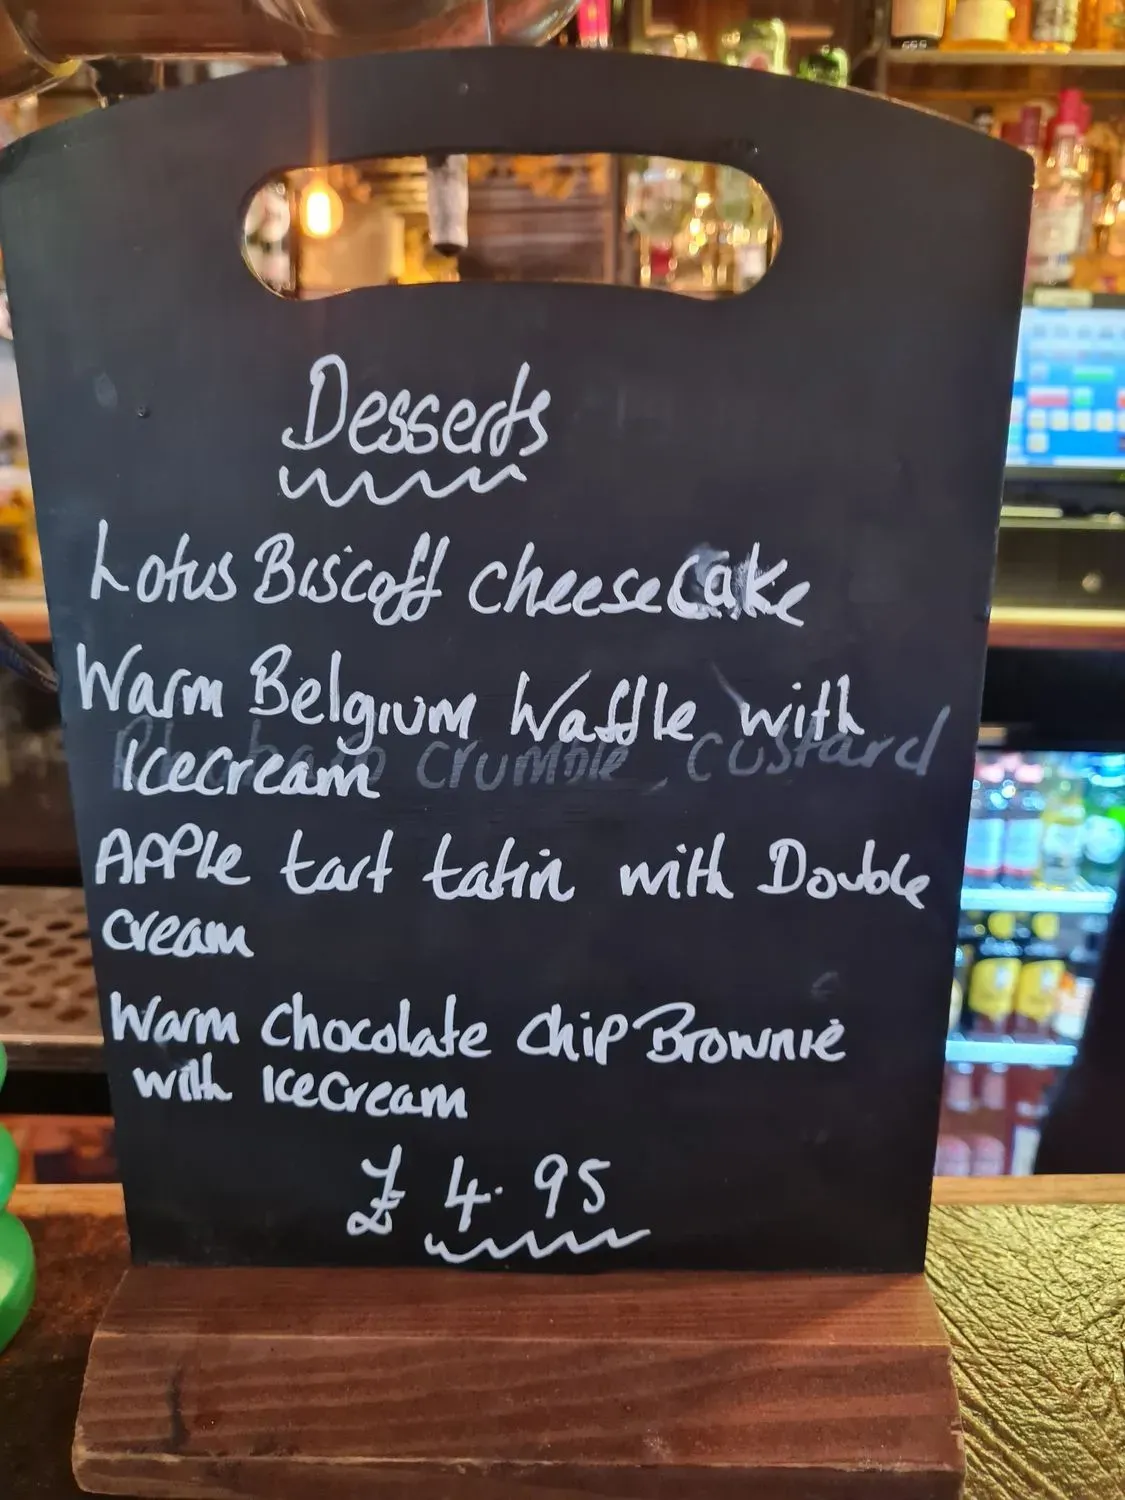 Desserts
Lotus Biscoff cheesecake
Warm Belgium Waffle with
Icecream
crumble custard
Apple tart tatin with Double
cream
Warm Chocolate Chip Brownie
with Icecream
£ 4.95